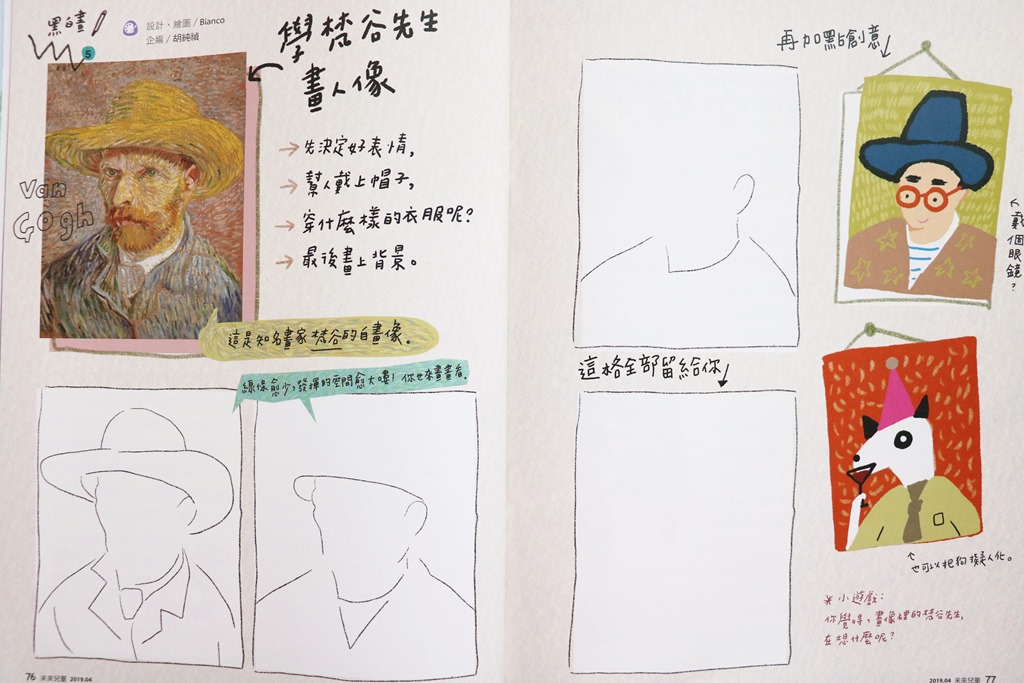 黑白畫
5
設計、繪圖 / Bianco
企編 / 胡純禎
學梵谷先生
畫人像
Van
Gogh
→先決定好表情,
→幫人戴上帽子,
→穿什麼樣的衣服呢?
→最後畫上背景。
這是知名畫家梵谷的自畫像。
線條愈少,發揮的空間愈大嘍!你也來畫畫看。
76 未來兒童 2019.04
再加點創意
戴個眼鏡?
這格全部留給你
也可以把狗擬人化。
*小遊戲:
你覺得,畫像裡的梵谷先生,
在想什麼呢?
2019.04 未來兒童 77